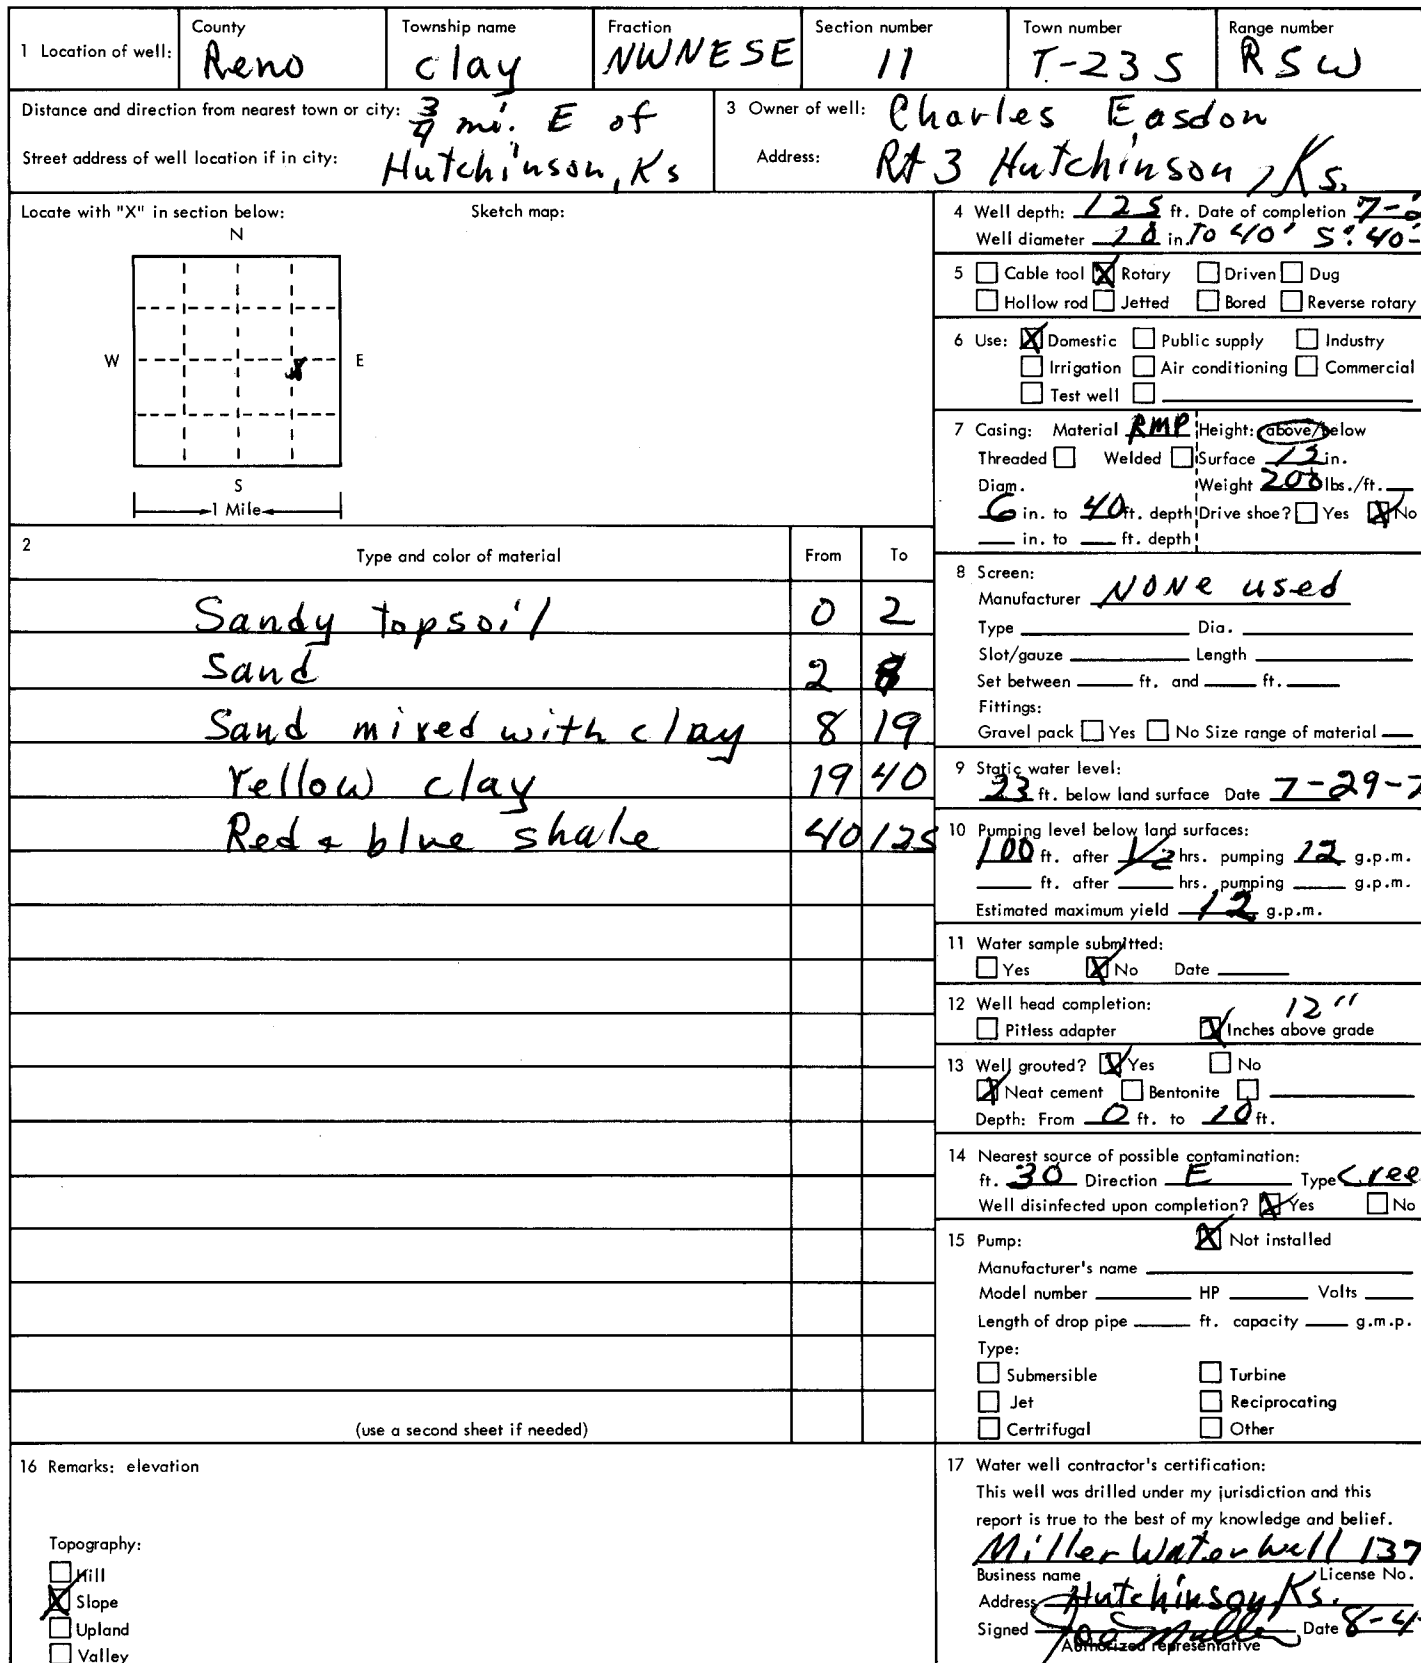 1 Location of well: County Reno Township name Clay Fraction NWNESE Section number 11 Town number T-23S Range number R5W
Distance and direction from nearest town or city: 3/4 mi. E of
Street address of well location if in city: Hutchinson, Ks
3 Owner of well: Charles Easdon
Address: Rt 3 Hutchinson, Ks.
Locate with "X" in section below: Sketch map:
N
W X E
S
1 Mile
2 Type and color of material From To
Sandy topsoil 0 2
Sand 2 8
Sand mixed with clay 8 19
Yellow clay 19 40
Red & blue shale 40 125
(use a second sheet if needed)
4 Well depth: 125 ft. Date of completion 7-
Well diameter 10 in. To 40' 5" 40-
5 ☐ Cable tool ☒ Rotary ☐ Driven ☐ Dug
☐ Hollow rod ☐ Jetted ☐ Bored ☐ Reverse rotary
6 Use: ☒ Domestic ☐ Public supply ☐ Industry
☐ Irrigation ☐ Air conditioning ☐ Commercial
☐ Test well ☐
7 Casing: Material RMP Height: above/below
Threaded ☐ Welded ☐ Surface 12 in.
Diam. Weight 200 lbs./ft.
6 in. to 40 ft. depth Drive shoe? ☐ Yes ☒ No
in. to ft. depth
8 Screen:
Manufacturer NONe used
Type Dia.
Slot/gauze Length
Set between ft. and ft.
Fittings:
Gravel pack ☐ Yes ☐ No Size range of material
9 Static water level:
23 ft. below land surface Date 7-29-7
10 Pumping level below land surfaces:
100 ft. after 1/2 hrs. pumping 12 g.p.m.
ft. after hrs. pumping g.p.m.
Estimated maximum yield 12 g.p.m.
11 Water sample submitted:
☐ Yes ☒ No Date
12 Well head completion: 12"
☐ Pitless adapter ☒ Inches above grade
13 Well grouted? ☒ Yes ☐ No
☒ Neat cement ☐ Bentonite ☐
Depth: From 0 ft. to 10 ft.
14 Nearest source of possible contamination:
ft. 30 Direction E Type Cree
Well disinfected upon completion? ☒ Yes ☐ No
15 Pump: ☒ Not installed
Manufacturer's name
Model number HP Volts
Length of drop pipe ft. capacity g.m.p.
Type:
☐ Submersible ☐ Turbine
☐ Jet ☐ Reciprocating
☐ Certrifugal ☐ Other
16 Remarks: elevation
Topography:
☐ Hill
☒ Slope
☐ Upland
☐ Valley
17 Water well contractor's certification:
This well was drilled under my jurisdiction and this
report is true to the best of my knowledge and belief.
Miller Water Well 137
Business name License No.
Address Hutchinson, Ks.
Signed Joe Miller Date 8-4-
Authorized representative